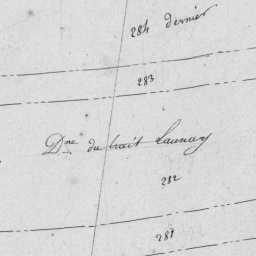 284 dernier
283
Dne du trait Launay
282
281